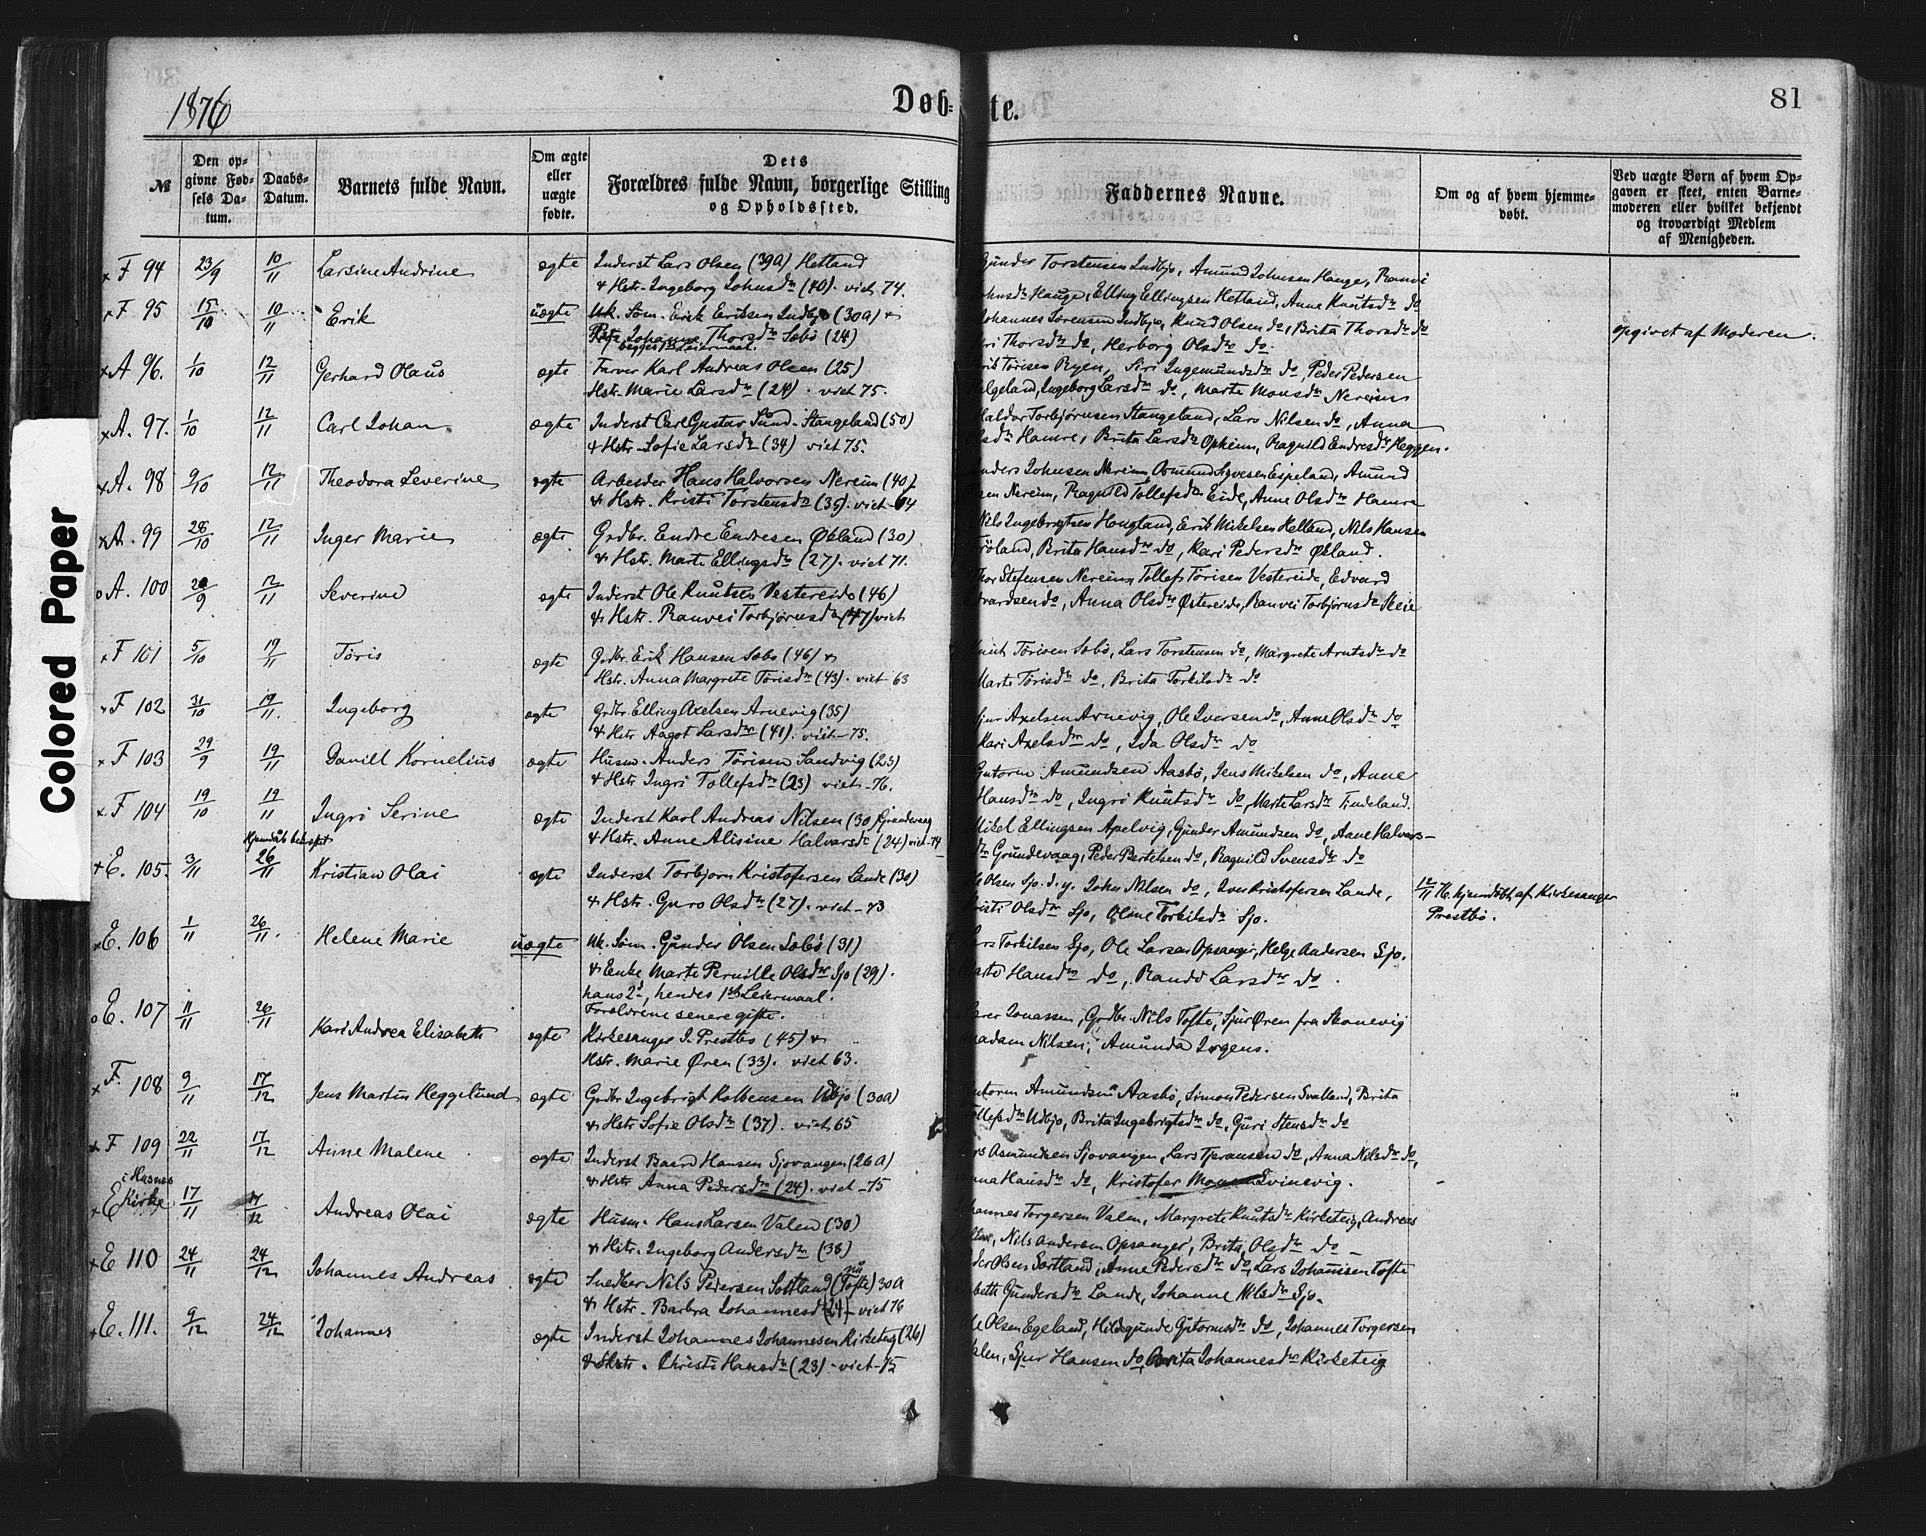 1876
Døb-
te.
81
№
Den op-
givne Fød-
sels Da-
tum.
Daabs-
Datum.
Barnets fulde Navn.
Om ægte
eller
uægte
fødte.
Dets
Forældres fulde Navn, borgerlige Stilling
og Opholdssted.
Faddernes Navne.
Om og af hvem hjemme-
døbt.
Ved uægte Børn af hvem Op-
gaven er skeet, enten Barne-
moderen eller hvilket bekjendt
og troværdigt Medlem
af Menigheden.
x F 94 23/9 10/11 Larsine Andrine ægte Inderst Lars Olsen (39a) Hetland
& Hstr. Ingeborg Johnsdr (40). viet 74.
Gunder Torstensen Indbjo, Amund Johnsen Hauge, Ranvei
Johnsdr Hauge, Elling Ellingsen Hetland, Anne Knutsdr do
x F 95 15/10 10/11 Erik uægte Uk. Søn. Erik Eriksen Indbjo (30a) &
Pige Johanne Thorsdr Sæbö (24)
begges 1ste Leiermaal.
Johannes Sørensen Indbjo, Knud Olsen do, Brita Thorsdr do
Thorsdr do, Herborg Olsdr do.
opgivet af Moderen.
x A 96. 1/10 12/11 Gerhard Olaus ægte Farver Karl Andreas Olsen (25)
Hstr. Marie Larsdr (24). viet 75.
Törisen Ryen, Siri Ingemundsdr do, Peder Pedersen
Helgeland, Ingeborg Larsdr do, Marte Monsdr Nereim
x A. 97. 1/10 12/11 Carl Johan ægte Inderst Carl Gustav Sund. Stangeland (50)
& Hstr. Sofie Larsdr (34) viet 75.
Haldor Torbjørnsen Stangeland, Lars Nilsen do, Anna
Hamre, Brita Larsdr Opheim, Ragnild Endresdr Heggen.
x A. 98 9/10 12/11 Theodora Severine ægte Arbeider Hans Halvorsen Nereim (40)
& Hstr. Kristi Torstensdr (36). viet 64
Anders Johnsen Nereim, Espeland, Amund
Nereim, Ragnild Tollefsdr Eide, Anne Olsdr Hamre
x A. 99 28/10 12/11 Inger Marie ægte Grdbr. Endre Endresen Økland (30)
& Hstr. Marte Ellingsdr (27). viet 71.
Nils Ingebrigtsen Hougland, Erik Mikelsen Helland, Nils Hansen
Fröland, Brita Hansdr do, Kari Pedersdr Økland.
o A. 100 29/9 12/11 Severine ægte Inderst Ole Knutsen Vestereide (46)
& Hstr. Ranvei Torbjørnsdr (47) viet
Thor Stefensen Nereim, Tollef Törisen Vestereide, Edvard
Edvardsen do, Anna Olsdr Østereide, Ranvei Torbjørnsdr Skeie
x F 101 5/10 19/11 Töris ægte Grdbr. Erik Hansen Sæbö (46) &
Hstr. Anna Margrete Törisdr (43). viet 63
Sæbö, Lars Torstensen do, Margrete Arntsdr do
Marte Törisdr do, Brita Torkilsdr do
x F 102 31/10 19/11. Ingeborg ægte Grdbr. Elling Axelsen Arnevig (35)
& Hstr Aagot Larsdr (41). viet 75.
Axelsen Arnevig, Ole Iversen do, Anne Olsdr do
Kari Axelsdr do, Ida Olsdr do
x F 103 29/9 19/11 Daniel Kornelius ægte Husm. Anders Törisen Sandvig (23)
& Hstr Ingri Tollefsdr (23) viet 76.
Gutorm Amundsen Aasbø, Jens Mikelsen do, Anne
Hansdr do, Ingri Knutsdr do, Marte Larsdr Tindeland.
x F 104 19/10 19/11 Ingri Serine ægte Inderst Karl Andreas Nilsen (30) Grundevaag
& Hstr. Anne Alisine Halvorsdr (24) viet 74
Mikel Ellingsen Apelvig, Gunder Amundsen do, Anne Halvors-
dr Grundevaag, Peder Bertelsen do, Ragnild Svensdr do
Hjemdåb bekræftet
x E. 105. 3/11 26/11 Kristian Olai ægte Inderst Torbjørn Kristofersen Lande (30)
& Hstr. Guro Olsdr (27). viet 73
Ole Olsen Sjo. d.y. John Nilsen do, Iver Kristofersen Lande,
Kristi Olsdr Sjo, Oline Torkilsdr Sjo.
12/11 76. hjemdøbt af Kirkesanger
Prestbö.
x E. 106 1/11 26/11. Helene Marie uægte Uk. Søn. Gunder Olsen Sæbö (31)
& Enke Marte Pernille Olsdr Sjo (29).
hans 2d, hendes 1ste Leiermaal.
Forældrene senere gifte.
Lars Torkilsen Sjo, Ole Larsen Opsanger, Helge Andersen Sjo.
Marte Hansdr do, Randi Larsdr do.
o E. 107 11/11 26/11 Kari Andrea Elisabeth ægte Kirkesanger I. Prestbø (45) &
Hstr. Marie Øren (33). viet 63.
Jonassen, Grdbr. Nils Tofte, Sjur Øren fra Skonevig
Madam Nilsen, Amunda Irgens.
x F. 108 9/11 17/12 Jens Martin Heggelund ægte Grdbr Ingebrigt Kolbensen Udbjo (30a)
& Hstr Sofie Olsdr (37). viet 65
Gutorm Amundsen Aasbö, Simon Pedersen Svalland, Brita
Tollefsdr Udbjo, Brita Ingebrigtsdr do, Guri Stensdr do
x F 109 22/11 17/12 Anne Malene ægte Inderst Baard Hansen Sjovangen (26a)
& Hstr Anna Pedersdr (24). viet 75
Asmundsen Sjovangen, Lars do, Anna Nilsdr do,
Anna Hansdr do, Kristofer Monsen Svinevig.
i Husnes
x E Kirke 17/11 17/12 Andreas Olai ægte Husm. Hans Larsen Valen (30)
& Hstr. Ingeborg Andersdr (38)
Johannes Torgersen Valen, Margrete Knutsdr Kirketeig, Andreas
Nils Andersen Opsanger, Brita Olsdr do
x E 110 24/11 24/12 Johannes Andreas ægte Snedker Nils Pedersen Sortland (nu Tofte) 30a
& Hstr. Barbra Johannesd (24) viet 76
Peder Olsen Sortland, Anne Pedersdr do, Lars Johannesen Tofte
Gundersdr Lande, Johanne Nilsdr Sjo.
x E. 111. 9/12 24/12 Johannes ægte Inderst Johannes Johannesen Kirketeig (26)
& Hstr. Christi Hansdr (23). viet 75
Ole Olsen Egeland, Hildegunde Gutormsdr do, Johannes Torgersen
Valen, Sjur Hansen do, Brita Johannesdr Kirketeig
Colored Paper